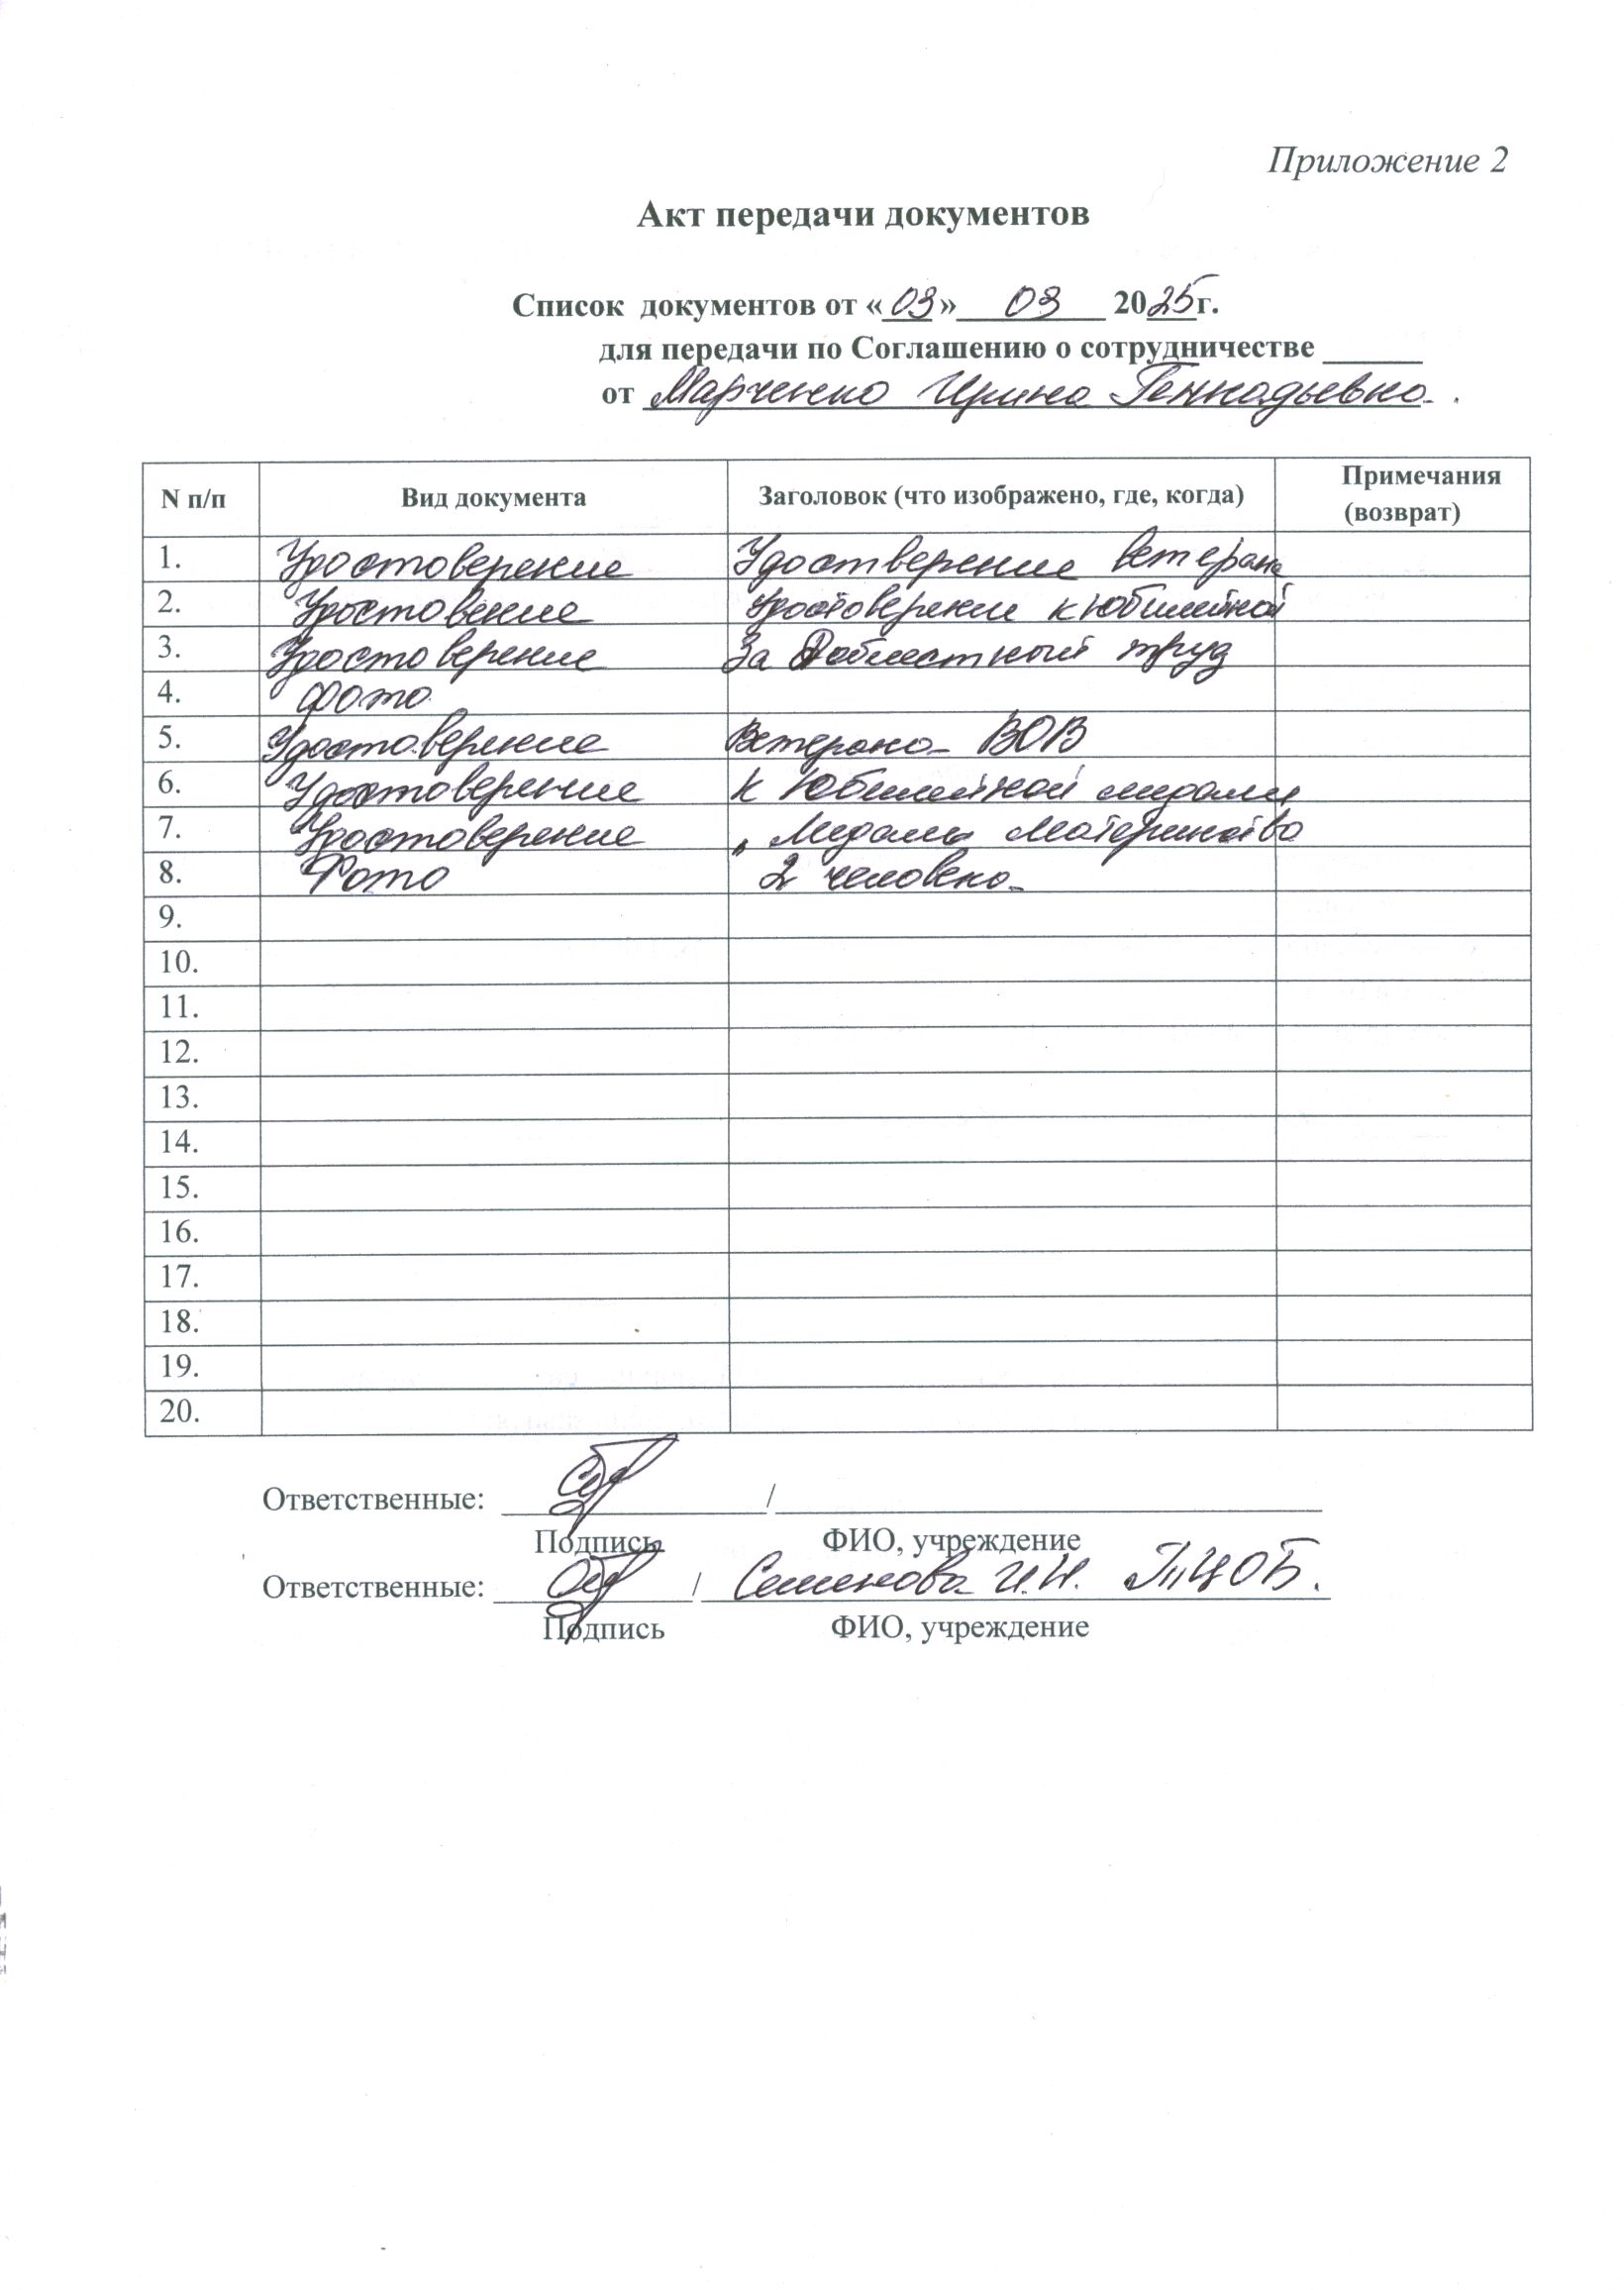 Приложение 2
Акт передачи документов
Список документов от «03» 03 2025г.
для передачи по Соглашению о сотрудничестве ______
от Марченко Ирина Геннадьевна.
N п/п Вид документа Заголовок (что изображено, где, когда) Примечания (возврат)
1. Удостоверение Удостверение ветерана
2. Удостовение Удостоверение к юбилейной
3. Удостоверение За Доблестный труд
4. Фото
5. Удостоверение Ветерана ВОВ
6. Удостоверение К Юбилейной медали
7. Удостоверение „ Медаль материнства
8. Фото 2 человека
9.
10.
11.
12.
13.
14.
15.
16.
17.
18.
19.
20.
Ответственные: ________/________
Подпись ФИО, учреждение
Ответственные: ________/ Семенова И.Н. ТЦОБ.
Подпись ФИО, учреждение